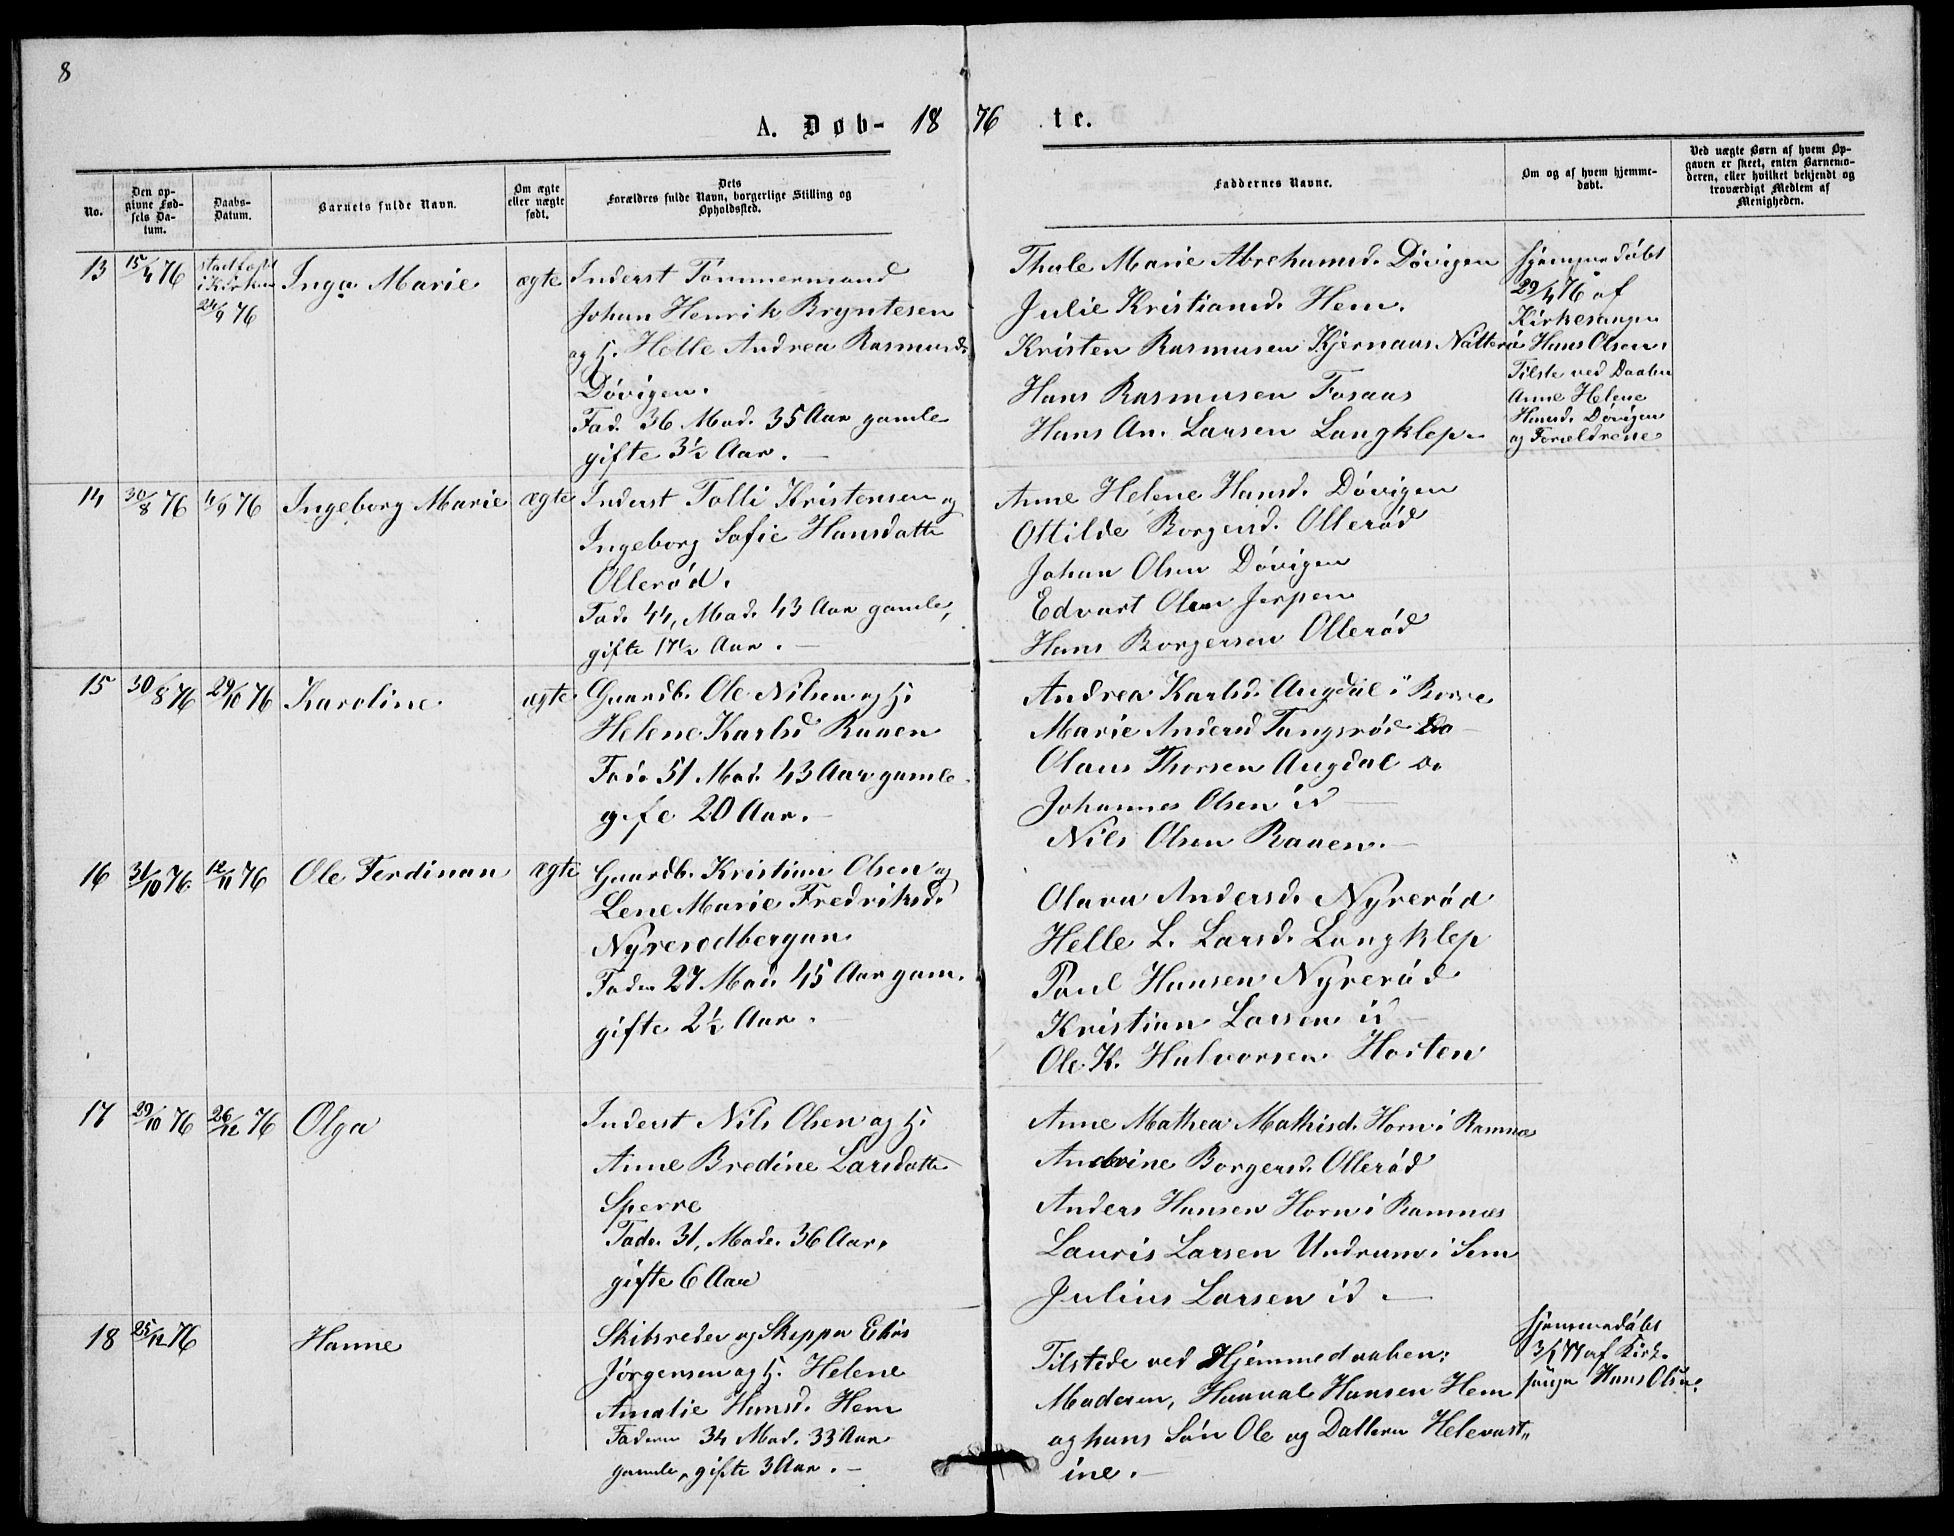 8
A. Døb- 18 76 te.
No.
Den opgivne Fødsels Datum.
Daabs-Datum.
Barnets fulde Navn.
Om ægte eller uægte født.
Dets Forældres fulde Navn, borgerlige Stilling og Opholdssted.
Faddernes Navne.
Om og af hvem hjemmedøbt.
Ved uægte Børn af hvem Opgaven er skeet, enten Barnemoderen, eller hvilket bekjendt og troværdigt Medlem af Menigheden.
13 15/4 76 stadfæst i Kirken 24/9 76 Inga Marie ægte
Inderst Tømmermand
Johan Henrik Bryntesen
og H. Helle Andrea Rasmusd.
Døvigen.
Fad. 36 Mod. 35 Aar gamle
gifte 3½ Aar.
Thale Marie Abrahamsd. Døvigen
Julie Kristiansd. Hem.
Kristen Rasmusen Kjernaas Nøtterø
Hans Rasmusen Fosaas
Hans An. Larsen Langklep.
Hjemmedøbt
29/4 76 af
Kirkesanger
Hans Olsen.
Tilste ved Daaben
Anne Helene
Hansd. Døvigen
og Forældrene
14 30/8 76 4/9 76 Ingeborg Marie ægte
Inderst Tolli Kristensen og
Ingeborg Sofie Hansdatte
Ollerød.
Fad. 44, Mod. 43 Aar gamle,
gifte 17½ Aar.
Anne Helene Hansd. Døvigen
Ottilde Borgersd. Ollerød
Johan Olsen Døvigen
Edvart Olsen Jerpen
Hans Borgersen Ollerød
15 30/8 76 29/10 76 Karoline ægte
Gaardb. Ole Nilsen og H.
Helene Karlsd Raaen
Fad. 51 Mod. 43 Aar gamle
gife 20 Aar.
Andrea Karlsd. Augdal i Borre
Marie Andersd Tangsrød do
Olaus Thorsen Augdal do
Johannes Olsen id
Nils Olsen Raaen.
16 31/10 76 12/11 76 Ole Ferdinan ægte
Gaardb. Kristian Olsen og
Lene Marie Fredriksd.
Nyrerødbergan
Fader 27 Mod. 45 Aar gam.
gifte 2½ Aar.
Olava Andersd. Nyrerød
Helle L. Larsd. Langklep
Paul Hansen Nyrerød
Kristian Larsen id
Ole K. Halvorsen Horten
17 29/10 76 26/12 76 Olga
Inderst Nils Olsen og H.
Anne Bredine Larsdatte
Sperre
Fade. 31, Mode. 36 Aar,
gifte 6 Aar
Anne Mathea Mathisd. Horn i Ramnæs
Andrine Borgersd. Ollerød
Anders Hansen Horn i Ramnæs
Lauris Larsen Undrum i Sem
Julius Larsen id.
18 25/12 76 Hanne
Skibsreder og Skipper
Jørgensen og H. Helene
Amalie Hansd. Hem
Faderen 34 Mod. 33 Aar
gamle, gifte 3 Aar.
Tilstede ved Hjemmedaaben:
Moderen, Hanval Hansen Hem
og hans Søn Ole og Datteren Helevast„
ine.
Hjemmedøbt
3/1 77 af Kirke
sanger Hans Olsen.